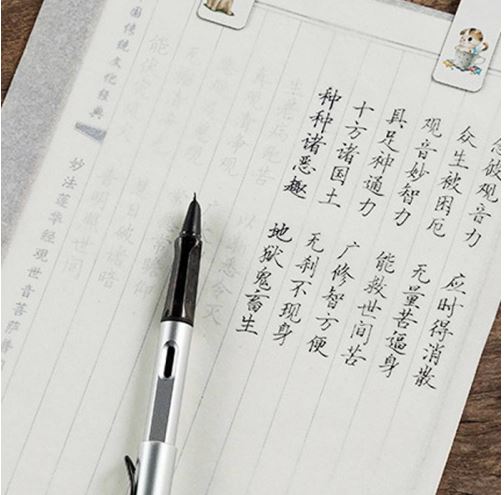 念彼观音力 应时得消散
众生被困厄 无量苦逼身
观音妙智力 能救世间苦
具足神通力 广修智方便
十方诸国土 无刹不现身
种种诸恶趣 地狱鬼畜生
生老病死苦 以渐悉令灭
国传统文化经典
妙法莲华经观世音菩萨普